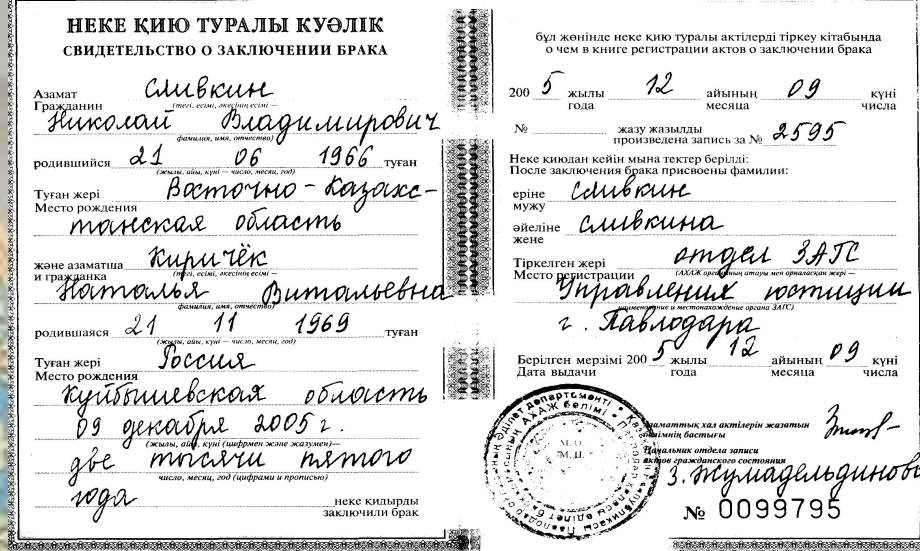 НЕКЕ ҚИЮ ТУРАЛЫ КУӘЛІК
СВИДЕТЕЛЬСТВО О ЗАКЛЮЧЕНИИ БРАКА
Азамат
Гражданин Сливкин
(тегі, есімі, әкесінің есімі —
Николай Владимирович
фамилия, имя, отчество)
родившийся 21 06 1966 туған
(жылы, айы, күні — число, месяц, год)
Туған жері
Место рождения Восточно-Казахс-
танская область
және азаматша
и гражданка Киричёк
(тегі, есімі, әкесінің есімі —
Наталья Витальевна
фамилия, имя, отчество)
родившаяся 21 11 1969 туған
(жылы, айы, күні — число, месяц, год)
Туған жері
Место рождения Россия
Куйбышевская область
09 декабря 2005 г.
(жылы, айы, күні (цифрмен және жазумен)—
две тысячи пятого
число, месяц, год (цифрами и прописью)
года
неке қилырды
заключили брак
бұл жөнінде неке қию туралы актілерді тіркеу кітабында
о чем в книге регистрации актов о заключении брака
200 5 жылы 12 айының 09 күні
года месяца числа
№ жазу жазылды
произведена запись за № 2595
Неке қиюдан кейін мына тектер берілді:
После заключения брака присвоены фамилии:
еріне
мужу Сливкин
әйеліне
жене Сливкина
Тіркелген жері
Место регистрации отдел ЗАГС
(АХАЖ органының атауы мен орналасқан жері —
Управления юстиции
наименование и местонахождение органа ЗАГС)
г. Павлодара
Берілген мерзімі 200 5 жылы 12 айының 09 күні
Дата выдачи года месяца числа
М.О.
М.П.
Азаматтық хал актілерін жазатын
бөлімнің бастығы
Начальник отдела записи
актов гражданского состояния
З. Жумадельдинова
№ 0099795